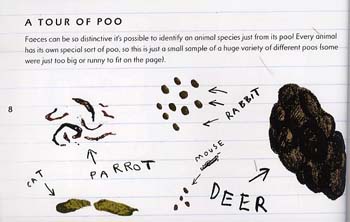 A TOUR OF POO
Faeces can be so distinctive it's possible to identify an animal species just from its poo! Every animal
has its own special sort of poo, so this is just a small sample of a huge variety of different poos (some
were just too big or runny to fit on the page).
8
RABBIT
PARROT
MOUSE
CAT
DEER